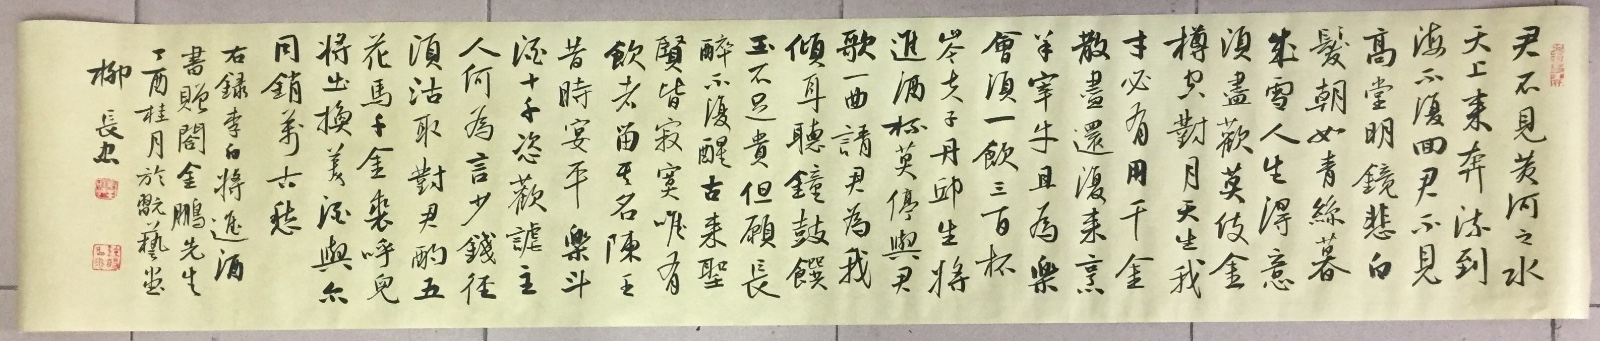 君不見黄河之水
天上来奔流到
海不復回君不見
高堂明鏡悲白
髮朝如青絲暮
成雪人生得意
須盡歡莫使金
樽空對月天生我
才必有用千金
散盡還復来烹
羊宰牛且為樂
會須一飲三百杯
岑夫子丹邱生將
進酒杯莫停與君
歌一曲請君為我
傾耳聽鐘鼓饌
玉不足貴但願長
醉不復醒古来聖
賢皆寂寞唯有
飲者留其名陳王
昔時宴平樂斗
酒十千恣歡謔主
人何為言少錢徑
須沽取對君酌五
花馬千金裘呼兒
將出換美酒與尔
同銷萬古愁
右録李白將進酒
書贈閤金鵬先生
丁酉桂月於翫藝堂
柳長忠